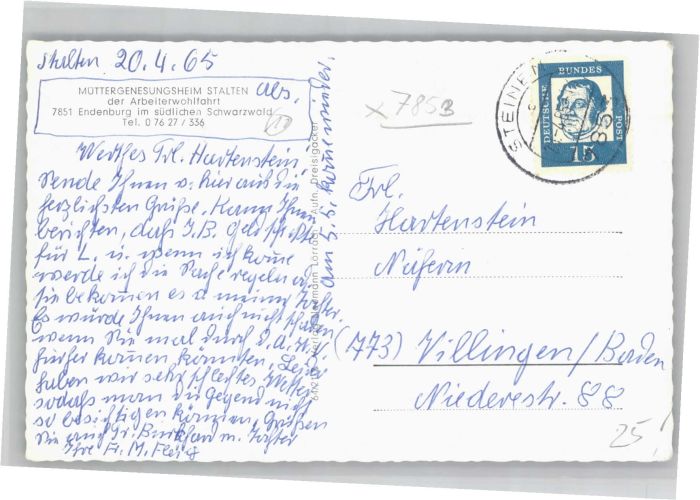 Stalten 20.4.65
MÜTTERGENESUNGSHEIM STALTEN
der Arbeiterwohlfahrt
7851 Endenburg im südlichen Schwarzwald
Tel. 0 76 27 / 336
Abs.
Werthes Frl. Hartenstein,
Sende Ihnen v. hier aus die
herzlichsten Grüße. Kann Ihnen
berichten, daß I.B. Geld
für L. u. wenn ich komme
werde ich die Sache regeln od.
Sie bekommen es v. meiner Tochter.
Es würde Ihnen auch nicht schaden
wenn Sie mal durch d. A.W.
hierher kommen könnten, Leider
haben wir sehr schlechtes Wetter
sodass man die Gegend nicht
so besichtigen können, Grüßen
Sie auch Fr. Burkhard m. Tochter
Ihre Fr. M.
am 5.5. komme wieder.
Lörrach Aufn. Dreisigacker
x 7853
STEINEN
DEUTSCHE BUNDESPOST
15
Frl.
Hartenstein
Näherin
(773) Villingen/Baden
Niederestr. 88
25